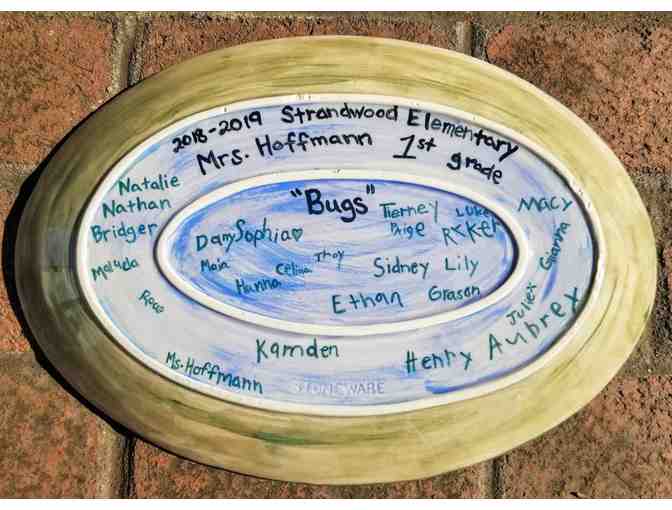 2018-2019 Strandwood Elementary
Mrs. Hoffmann 1st grade
"Bugs"
Natalie
Nathan
Bridger
Tierney
Luke
Macy
Dany Sophia♡
Paige
Gianna
Maia
Celina
Sidney
Lily
Hanna
Ethan
Grason
Juliex
Aubrex
Kamden
Henry
Ms. Hoffmann
STONEWARE